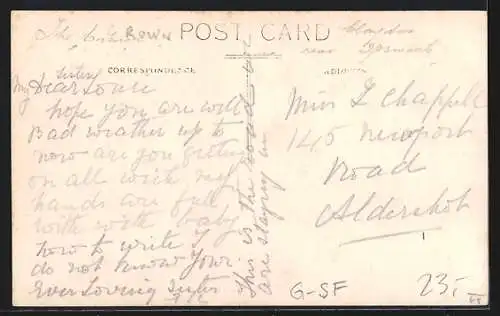 The Crown POST CARD Claydon
near Ipswich
CORRESPONDENCE ADDRESS
My Dear Sister
hope you are well
Bad weather up to
now are you getting
on all wich my
hands are full
with with baby
how to write I
do not know your
Ever Loving Sister
This is the road we
are staying in
Miss L Chappell
145 Newport
Road
Aldershot
G-SF
23,-